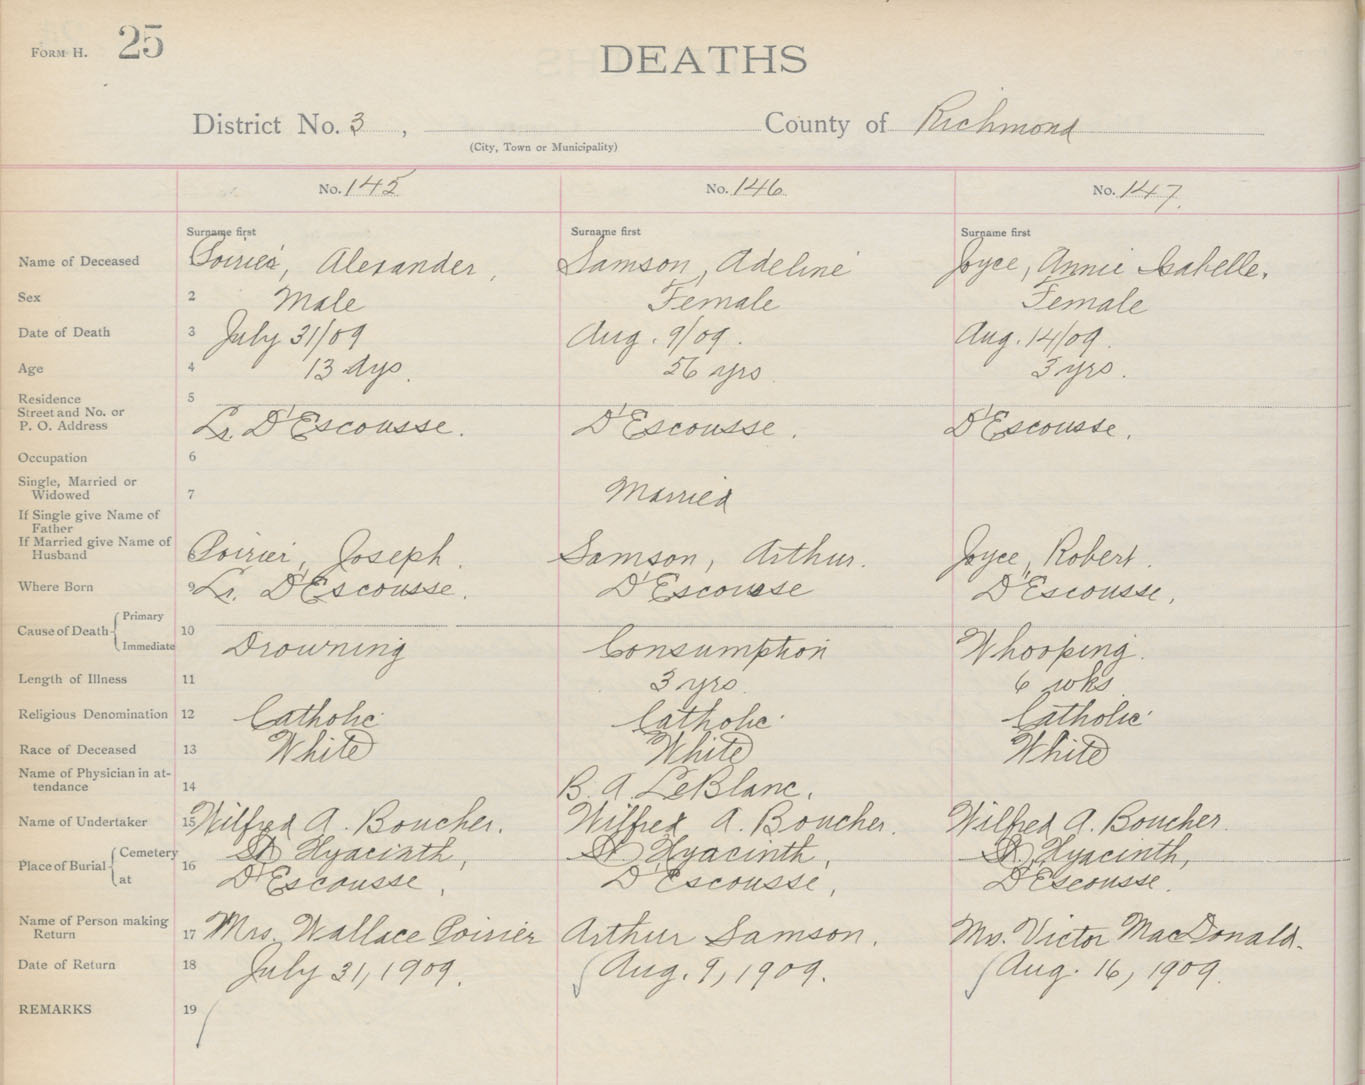 FORM H. 25
DEATHS
District No. 3, County of Richmond
(City, Town or Municipality)
No. 145 No. 146 No. 147.
Surname first Surname first Surname first
Name of Deceased Poirier, Alexander, Samson, Adeline Joyce, Annie Isabelle.
Sex 2 Male Female Female
Date of Death 3 July 31/09 Aug. 9/09. Aug. 14/09.
Age 4 13 dys. 56 yrs 3 yrs.
Residence 5
Street and No. or
P. O. Address Lr. D'Escousse. D'Escousse. D'Escousse.
Occupation 6
Single, Married or
Widowed 7 Married
If Single give Name of
Father
If Married give Name of
Husband 8 Poirier, Joseph. Samson, Arthur. Joyce, Robert.
Where Born 9 Lr. D'Escousse. D'Escousse D'Escousse,
Cause of Death { Primary
10 Immediate Drowning Consumption Whooping.
Length of Illness 11 3 yrs. 6 wks.
Religious Denomination 12 Catholic Catholic Catholic
Race of Deceased 13 White White White
Name of Physician in at-
tendance 14 B. A. LeBlanc.
Name of Undertaker 15 Wilfred A. Boucher. Wilfred A. Boucher. Wilfred A. Boucher.
Place of Burial { Cemetery 16 St. Hyacinth, St. Hyacinth, St. Hyacinth,
at D'Escousse, D'Escousse, D'Escousse.
Name of Person making
Return 17 Mrs. Wallace Poirier Arthur Samson. Mrs. Victor MacDonald.
Date of Return 18 July 31, 1909. Aug. 9, 1909. Aug. 16, 1909.
REMARKS 19